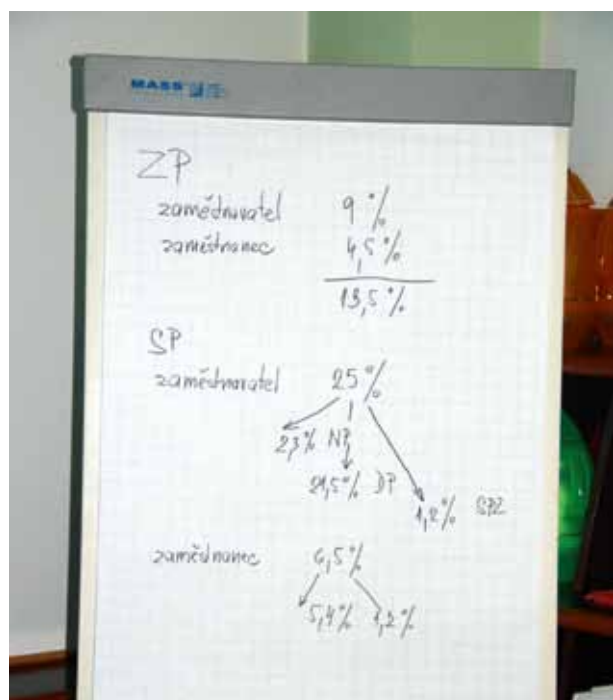 MASS
ZP
zaměstnavatel 9 %
zaměstnanec 4,5 %
13,5 %
SP
zaměstnavatel 25 %
2,3 % NP
21,5 % DP
1,2 % SPZ
zaměstnanec 6,5 %
5,4 % 1,2 %